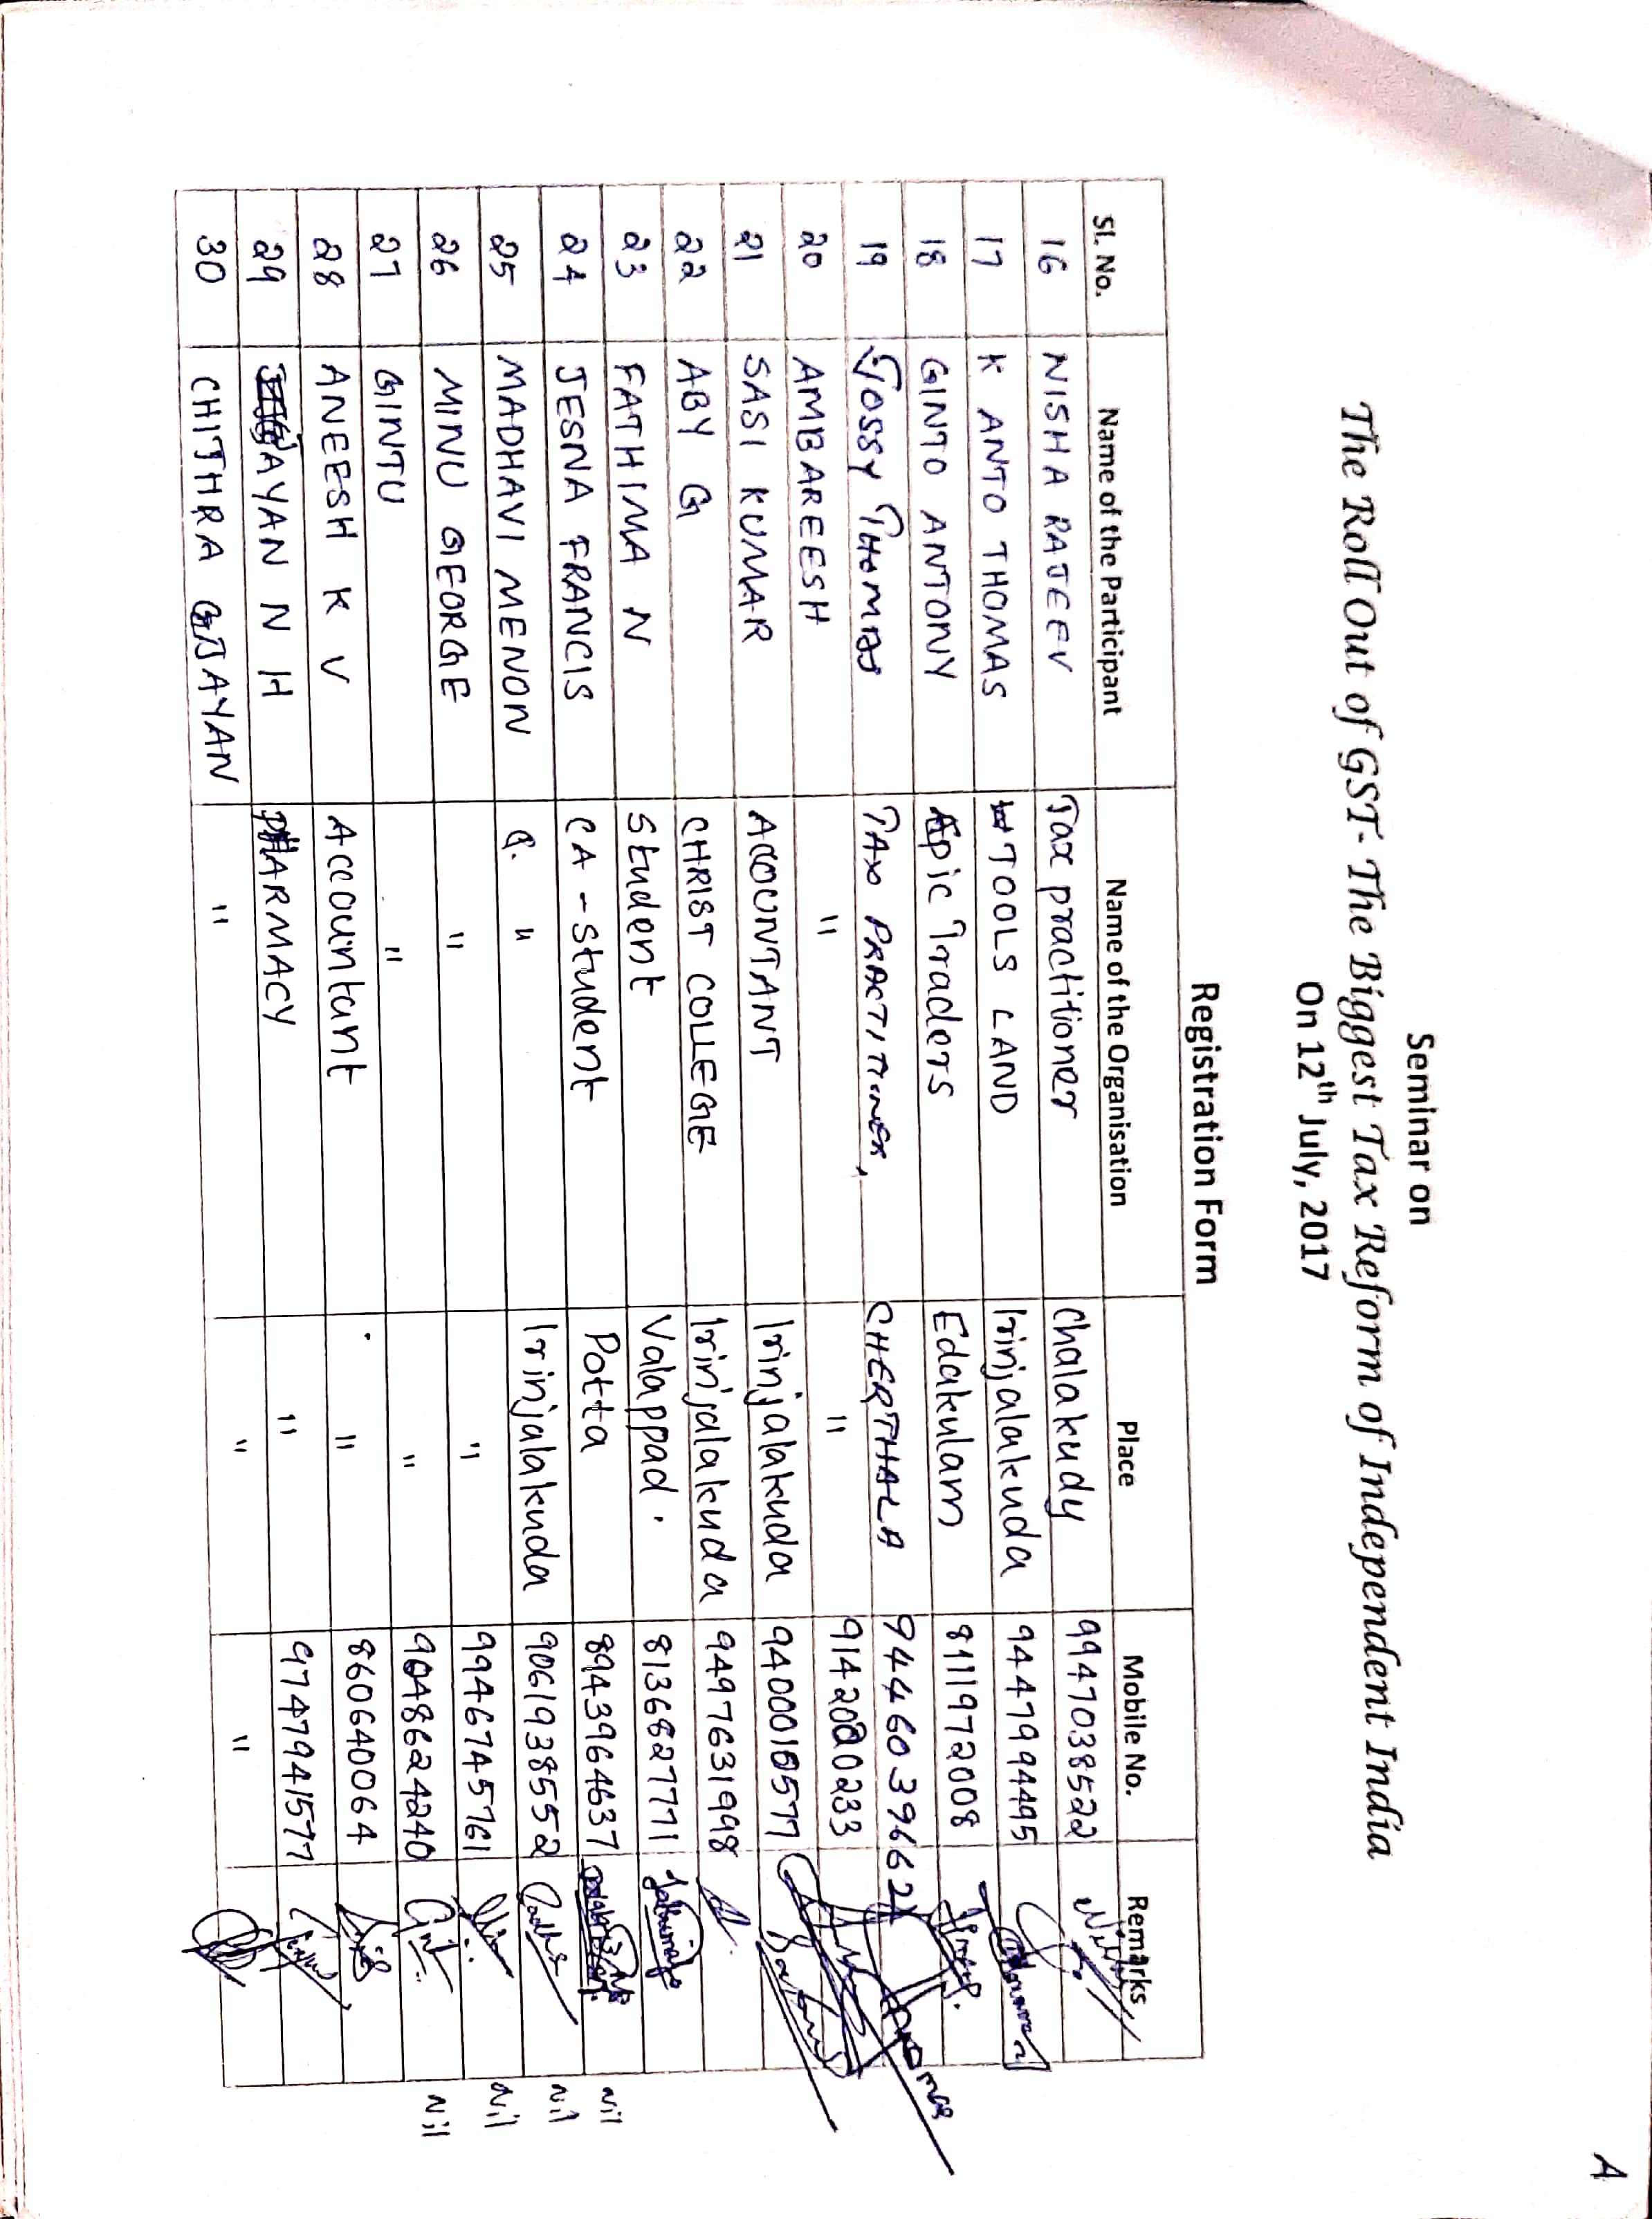 A
Seminar on
The Roll Out of GST- The Biggest Tax Reform of Independent India
On 12th July, 2017
Registration Form
Sl. No. Name of the Participant Name of the Organisation Place Mobile No. Remarks
16 NISHA RAJEEV Tax practitioner Chalakudy 9947038522
17 K ANTO THOMAS TOOLS LAND Irinjalakuda 9447994495
18 GINTO ANTONY Apic Traders Edakulam 8111972008
19 Jossy THOMAS TAX PRACTITINER, CHERTHALA 9446039662
20 AMBAREESH " " 9142020233
21 SASI KUMAR ACCOUNTANT Irinjalakuda 9400010577
22 ABY G CHRIST COLLEGE Irinjalakuda 9497631998
23 FATHIMA N Student Valappad. 8136827771
24 JESNA FRANCIS CA-student Potta 8943964637 Nil
25 MADHAVI MENON " Irinjalakuda 9061938552 Nil
26 MINU GEORGE " " 9946745761 Nil
27 GINTU " " 9048624240 Nil
28 ANEESH K V Accountant " 8606400064
29 JAYAN N H PHARMACY " 9747941577
30 CHITHRA JAYAN " " "